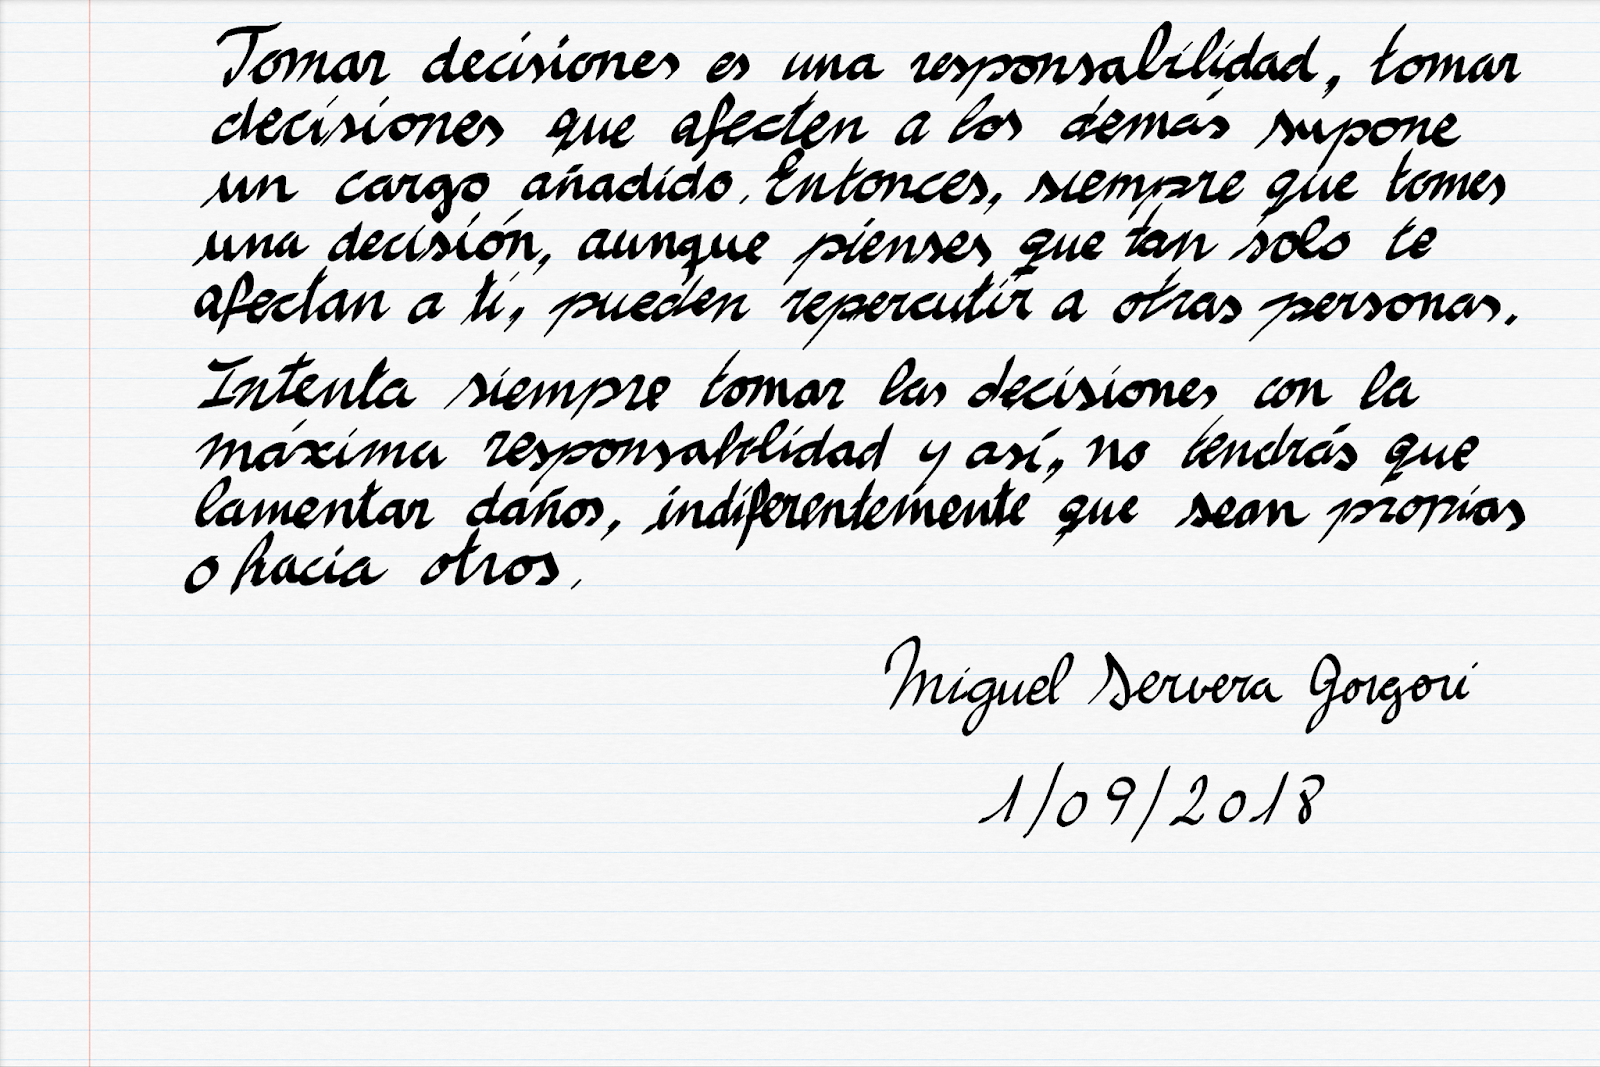 Tomar decisiones es una responsabilidad, tomar
decisiones que afecten a los demás supone
un cargo añadido. Entonces, siempre que tomes
una decisión, aunque pienses que tan solo te
afectan a ti, pueden repercutir a otras personas.
Intenta siempre tomar las decisiones con la
máxima responsabilidad y así, no tendrás que
lamentar daños, indiferentemente que sean propias
o hacia otros.
Miguel Servera Gorgori
1/09/2018